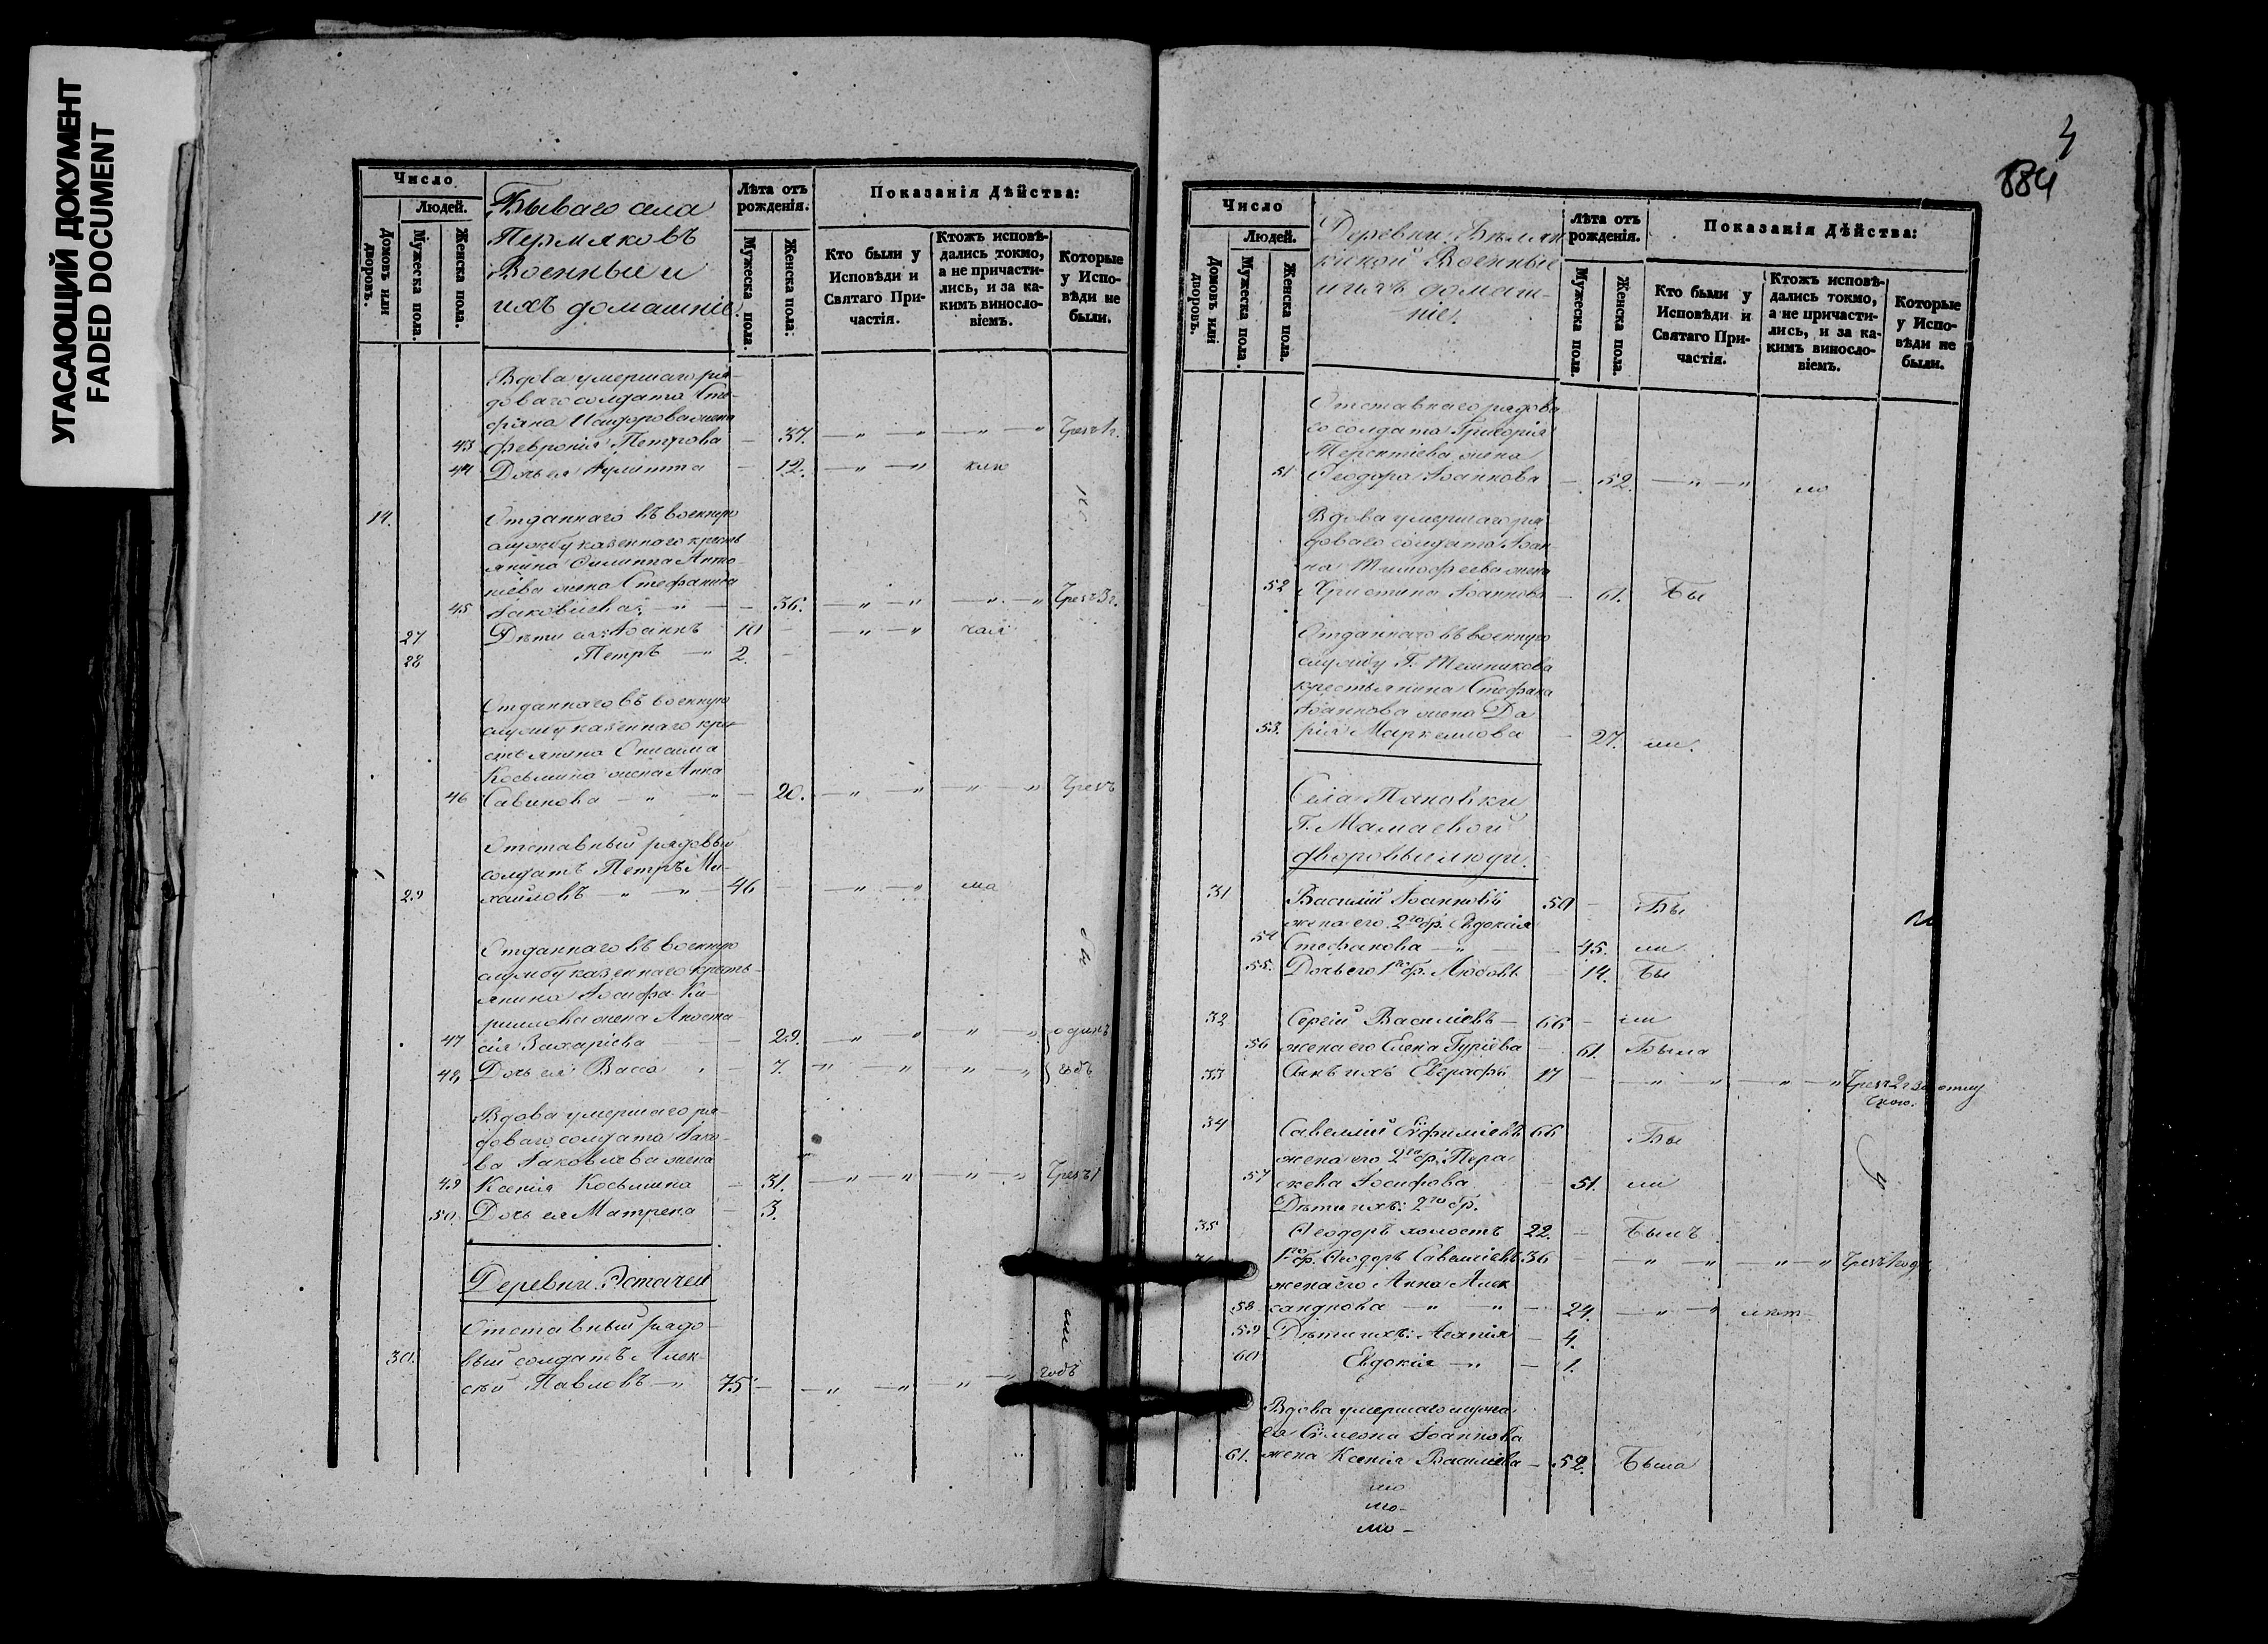 УГАСАЮЩИЙ ДОКУМЕНТ
FADED DOCUMENT
Число
Людей.
Домовъ или дворовъ.
Мужеска пола.
Женска пола.
Бываго села
Пермяковъ
Военные и
ихъ домашніе.
Лѣта отъ рожденія.
Мужеска пола.
Женска пола:
Показанія Дѣйства:
Кто были у Исповѣди и Святаго Причастія.
Ктожъ исповѣдались токмо, а не причастились, и за какимъ винословіемъ.
Которые у Исповѣди не были.
Вдова умершаго ря-
доваго солдата Сте-
фана Исидорова жена
43 Февронія Петрова — 37. — " — " — " — " Чрезъ 1г.
44 Дочь ея Іулитта — 12. — " — "
14. Отданнаго въ военную
службу казеннаго кресть
янина Филиппа Анто-
ніева жена Стефанида
45 Іаковлева — " — — 36. — " — " — " — " Чрезъ 3г.
27 Дѣти ея: Іоаннъ 10 — — " — "
28 Петръ — " 2. —
Отданнаго въ военную
службу казеннаго кре-
стьянина Онисима
Косьмина жена Анна
46 Савинова — " — " — 20. — " — " — " — " Чрезъ
Отставный рядовый
солдатъ Петръ Ми-
29 хаиловъ " — " — 46 — — " — "
Отданнаго въ военную
службу казеннаго кресть-
янина Іосифа Ки-
риллова жена Анаста-
47 сія Захаріева — — 29. — " — " — " — " одинъ
48 Дочь ея Васса " — 7. — " — " — " — " годъ
Вдова умершаго ря-
доваго солдата Іако-
ва Іаковлева жена
49 Ксенія Косьмина — 31. — " — " — " — " Чрезъ 1
50. Дочь ея Матрена — 3.
Деревни Эстачей
Отставный рядо-
30. вый солдатъ Алек-
сѣй Павловъ — " 75 — — " — " — " — годъ
884
Число
Людей.
Домовъ или дворовъ.
Мужеска пола.
Женска пола.
Деревни
Военные
и ихъ домаш-
ніе.
Лѣта отъ рожденія.
Мужеска пола.
Женска пола.
Показанія Дѣйства:
Кто были у Исповѣди и Святаго Причастія.
Ктожъ исповѣдались токмо, а не причастились, и за какимъ винословіемъ.
Которые у Исповѣди не были.
Отставнаго рядова
го солдата Григорія
Терентіева жена
51 Ѳеодора Іоаннова — 52. — " — "
Вдова умершаго ря-
доваго солдата Іоан-
на Тимофеева жена
52 Христина Іоаннова — 61. Бы
Отданнаго въ военную
службу Г.
крестьянина Стефана
Іоаннова жена Да
53. рія Маркеллова — 27. ли.
Села Пановки
Г. Мамаевой
дворовые люди.
31 Василій Іоанновъ 50 — Бы
жена его 2го бр. Евдокія
54 Стефанова — " — — 45. ли
55. Дочь его 1го бр. Любовь — 14. Бы
32 Сергій Василіевъ — 66 — ли
56 жена его Елена Гуріева — 61. Была
33 Сынъ ихъ Евграфъ 17 — — " — " — " — " Чрезъ 2г за отлу
чкою.
34 Савеллий Евфиміевъ 66 Бы
жена его 2го бр. Пара
57 скева Іосифова — 51. ли
Дѣти ихъ: 2го бр.
35 Ѳеодоръ холостъ 22. — Былъ
1го бр. Ѳеодоръ Савелліевъ 36 — — " — " — " — " Чрезъ 1 годъ
жена его Анна Алек
58 сандрова — " — " — 24. — " — "
59 Дѣти ихъ: — 4.
60 Евдокія — " — 1.
Вдова умершаго
Симеона Іоаннова
61. жена Ксенія Василіева — 52. Была